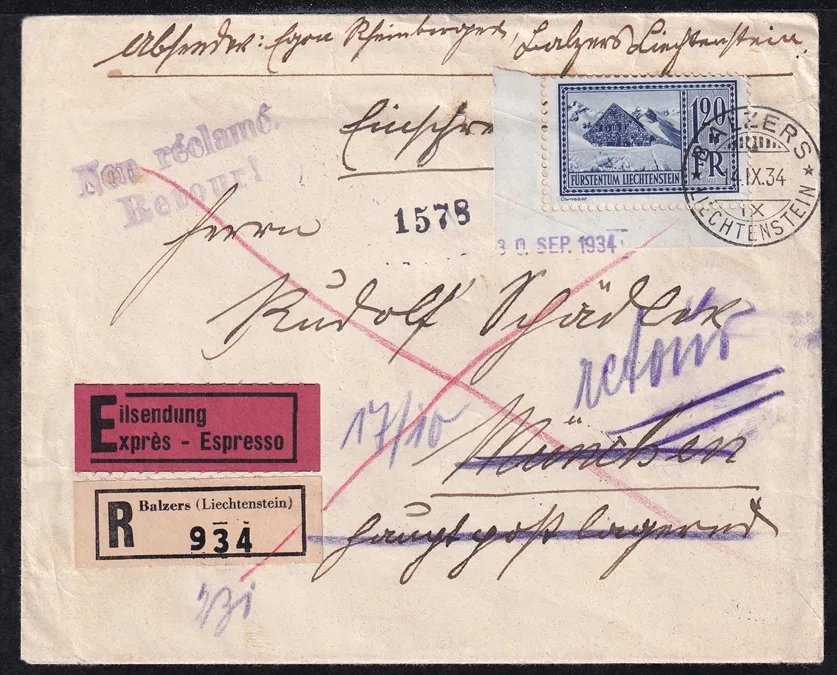 Absender: Egon Rheinberger, Balzers Liechtenstein.
Non réclamé.
Retour!
Einschre
120
FR
FÜRSTENTUM LIECHTENSTEIN
Courvoisier
BALZERS
.IX.34
IX
LIECHTENSTEIN
Herrn
1578
30. SEP. 1934
Rudolf Schädler
retour
Eilsendung
Exprès - Espresso
17/10
München
R
Balzers (Liechtenstein)
934
hauptpostlagernd